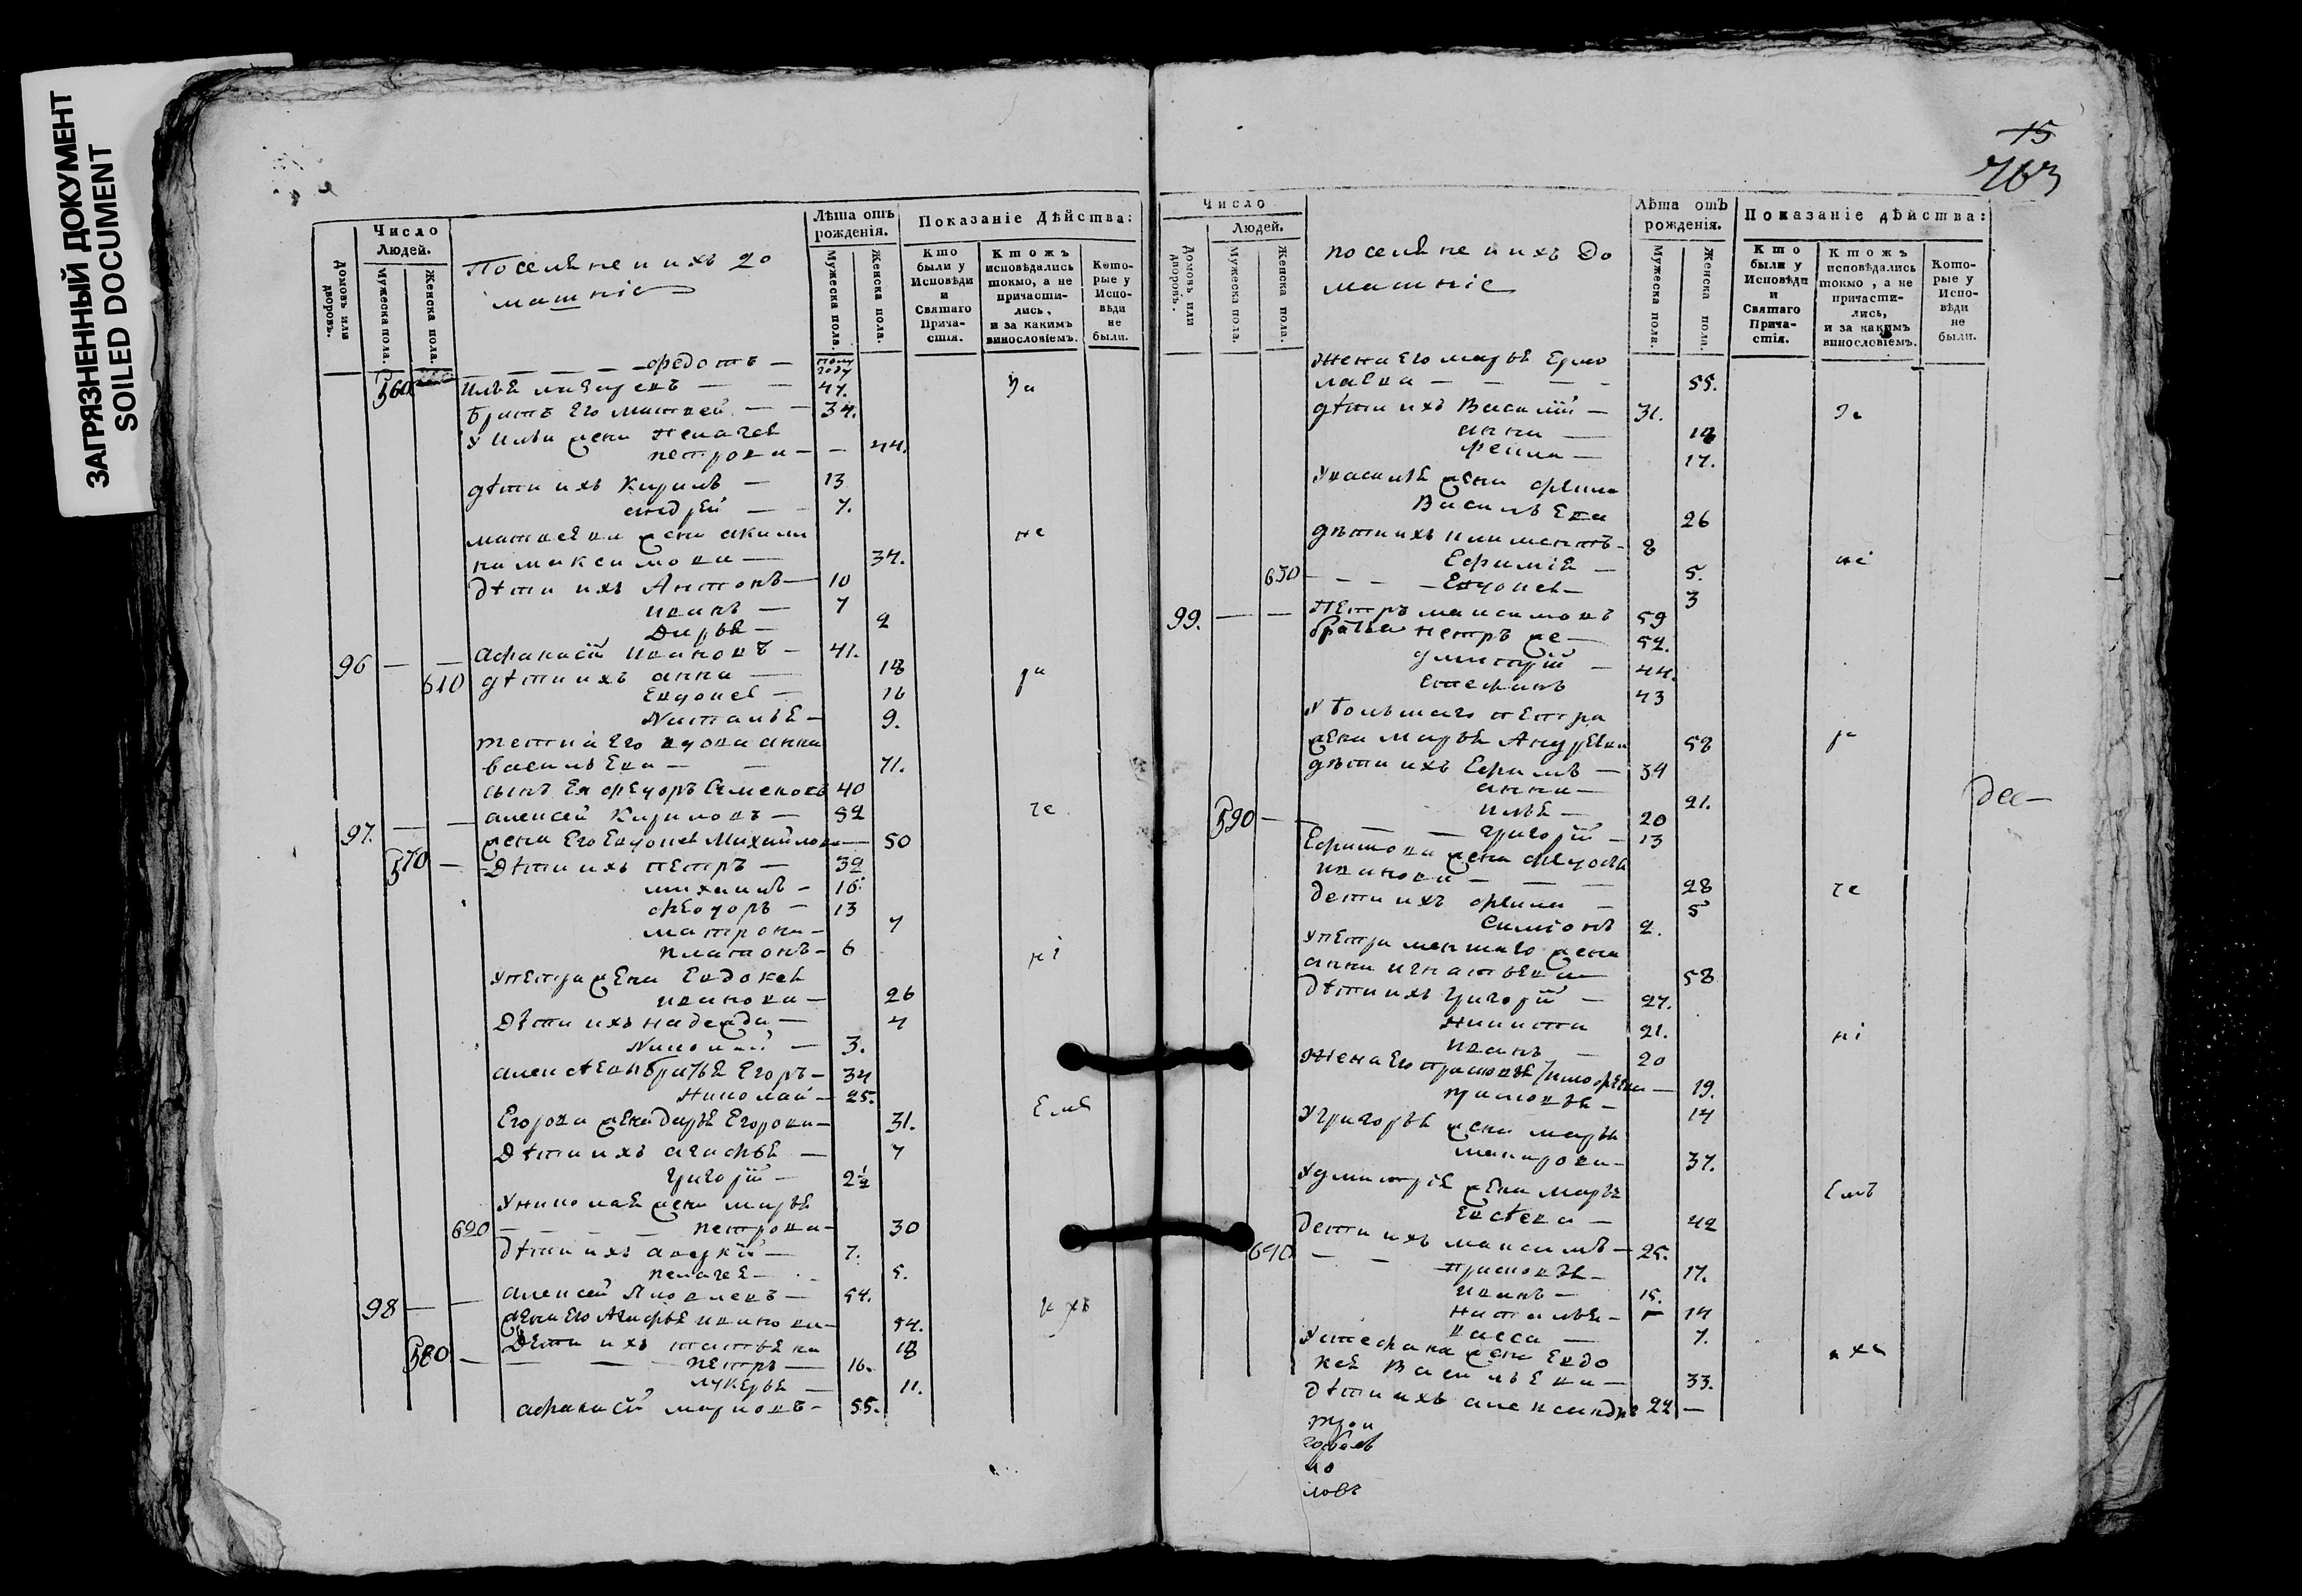 ЗАГРЯЗНЕННЫЙ ДОКУМЕНТ
SOILED DOCUMENT
Число
Людей.
домовъ или дворовъ.
Мужеска пола.
Женска пола.
Поселяне и ихъ до
машніе
Лѣта отъ рожденія.
Мужеска пола.
Женска пола.
Показаніе дѣйства:
Кто были у Исповѣди и Святаго Прича-стія.
Ктожъ исповѣдались токмо, а не причасти-лись, и за какимъ винословіемъ.
Кото-рые у Испо-вѣди не были.
Федотъ — полу году
560 Илья — — 47.
братъ его Матвей — — 34.
У Ильи жена Пелагея
Петрова — — 44.
дѣти ихъ Кирилъ — 13
андрей — — 7.
Матвеева жена акили
на максимова — 34.
дѣти ихъ Антонъ — 10
иванъ — 7
Дарья — 2
96 — — Афанасій Ивановъ — 41.
610 дѣти ихъ анна — 18
Евдокея — 16
Наталья — 9.
тетка его вдова анна
васильева — — 71.
сынъ ея федоръ Семеновъ 40
97. — — алексей Кириловъ — 52
жена Его Евдокея Михайлова — 50
570 — Дѣти ихъ петръ — 32
михаилъ — 16.
феодоръ — 13
матрона — 7
платонъ — 6
У петра жена Евдокея
иванова — 26
Дѣти ихъ надежда — 4
Николай — 3.
алексѣевы братья Егоръ — 34
Николай — 25.
Егорова жена Дарья Егорова — 31.
Дѣти ихъ агафья — 7
григорій — 2½
У николая жена марья
620 — — — петрова — 30
дѣти ихъ аверкій — 7.
пелагея — 5.
98 — — алексей Яковлевъ — 54.
жена его Агафья иванова — 54.
Дѣти ихъ татьяна 18
580 — — — петръ — 16.
лукерья — 11.
афанасій марковъ — 55.
15
763
Число
Людей.
Домовъ или дворовъ.
Мужеска пола.
Женска пола.
поселяне и ихъ до
машніе
Лѣта отъ рожденія.
Мужеска пола.
Женска пола.
Показаніе дѣйства:
Кто были у Исповѣди и Святаго Прича-стія.
Ктожъ исповѣдались токмо, а не причасти-лись, и за какимъ винословіемъ.
Кото-рые у Испо-вѣди не были.
Жена его марья Ермо
лаева — — — 55.
дѣти ихъ Василій — 31.
анна — 18
фекла — 17.
У василья жена фекла
Васильева 26
дѣти ихъ климентъ — 8
Ефимія — 5.
630 — — — Евдокея — 3
99. — — Петръ максимовъ 59
братья петръ же — 52.
дмитрій — 44.
стефанъ 43
У большаго петра
жена марья Андреева 58
дѣти ихъ Ефимъ — 34
анна — 21.
илья — 20
590 — — — григорій — 13
Ефимова жена федосья
иванова — — — 28
дети ихъ фекла — 5
Симіонъ 2.
У петра меншаго жена
анна игнатьева 58
дѣти ихъ григорій — 27.
Никита 21.
иванъ — 20
Жена его прасковья Тимофеева — 19.
прасковья — 14
У григорья жена марья
макарова — 37.
У дмитрія жена марья
Евсеева — 42
дети ихъ максимъ — 25.
640. — — прасковья — 17.
иванъ — 15.
наталья — 14
васса — 7.
У стефана жена Евдо
кея Васильева — 33.
дѣти ихъ александръ 22 —